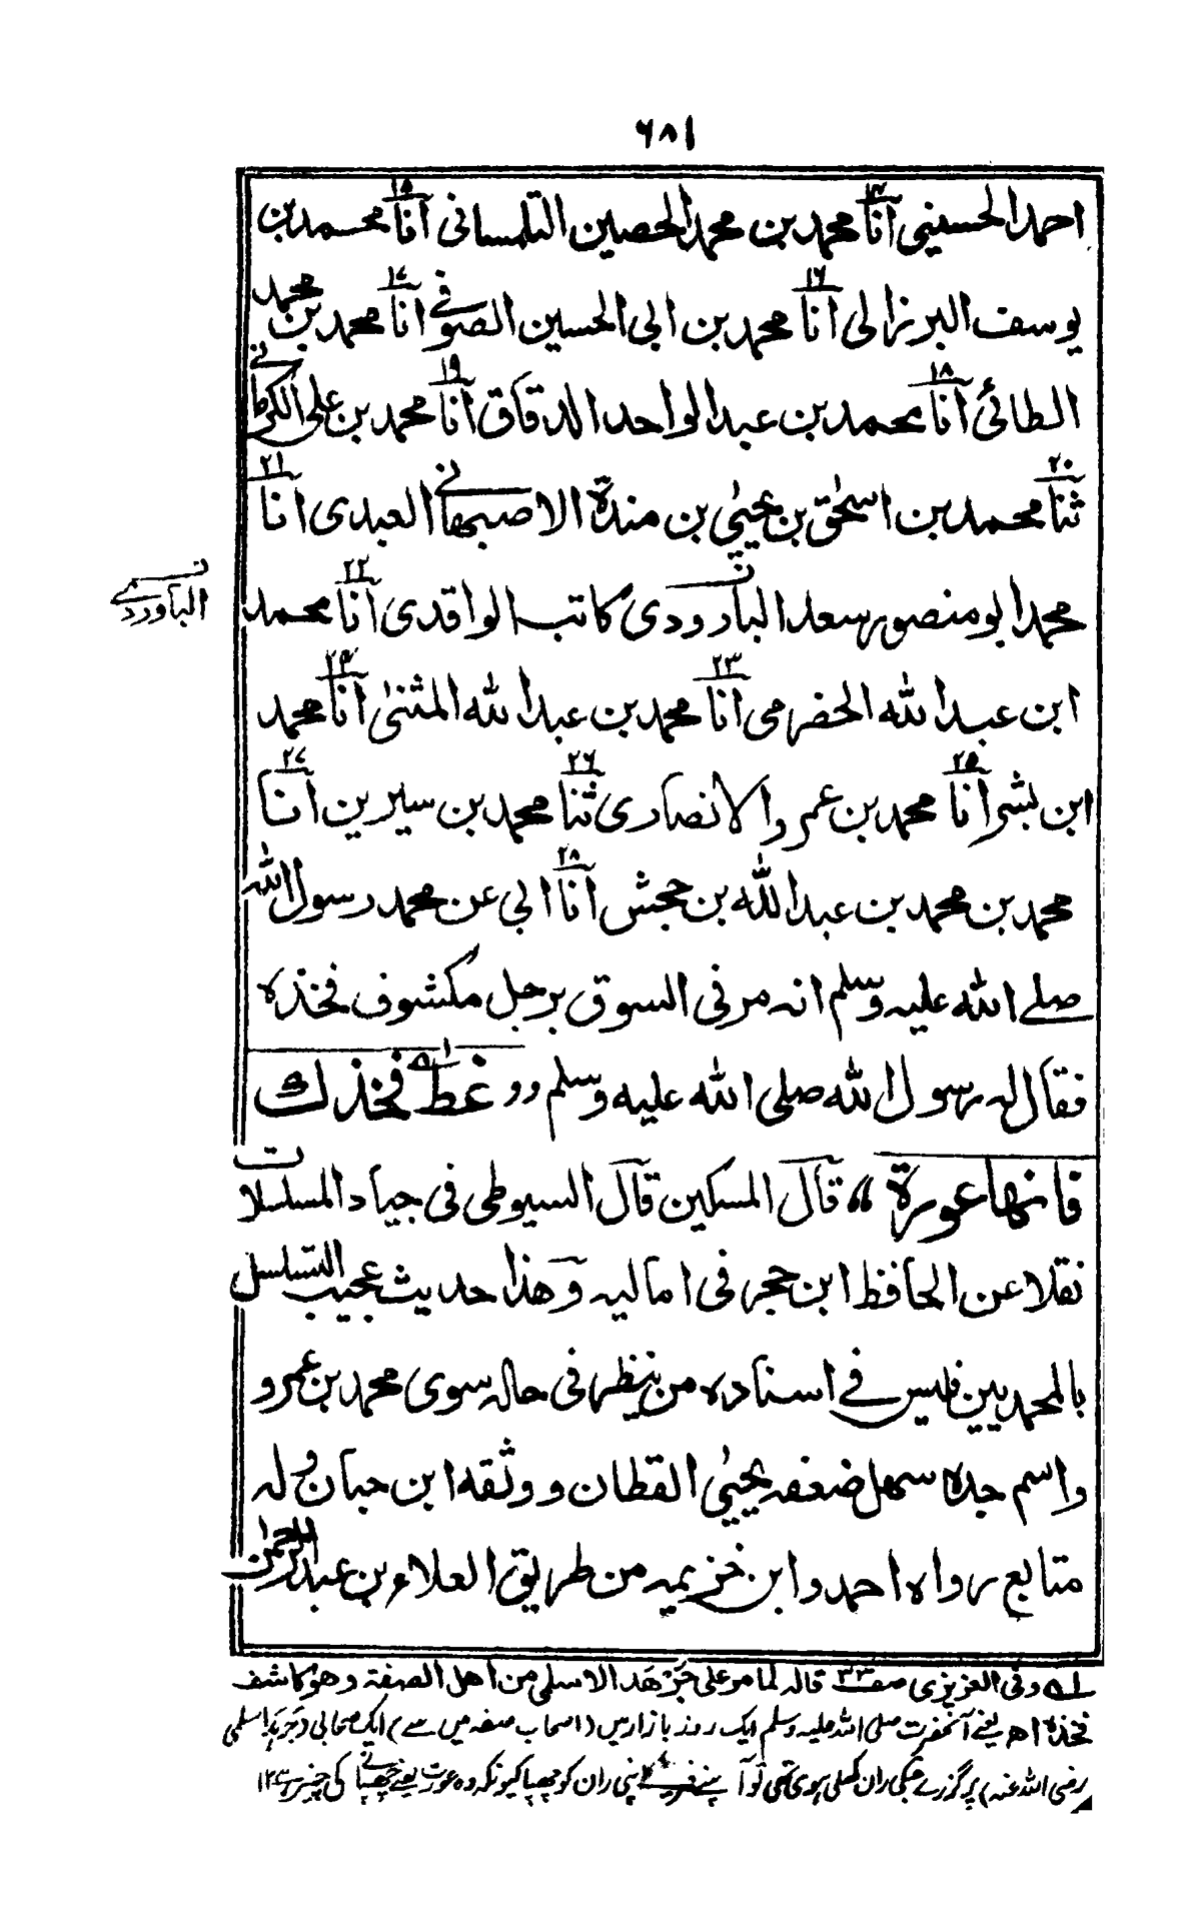 ٦٨١
احمد الحسيني انا محمد بن محمد الحصين التلمسانى انا محمد بن
يوسف البرزالى انا محمد بن ابى الحسين الصوفى انا محمد بن محمد
الطائى انا محمد بن عبد الواحد الدقاق انا محمد بن على الكرانى
ثنا محمد بن اسحٰق بن يحيىٰ بن مندة الاصبهانى العبدى انا
محمد ابو منصور سعد البارودى كاتب الواقدى انا محمد
الباوردى
ابن عبد الله الحضرمى انا محمد بن عبد الله المثنىٰ انا محمد
ابن بشر انا محمد بن عمرو الانصارى ثنا محمد بن سيرين انا
محمد بن محمد بن عبد الله بن جحش انا ابى عن محمد رسول الله
صلے الله عليه وسلم انه مر فى السوق برجل مكشوف فخذه
فقال له رسول الله صلى الله عليه وسلم «غط فخذك
فانها عورة» قال المسكين قال السيوطى فى جياد المسلسلات
نقلا عن الحافظ ابن حجر فى اماليه وهذا حديث عجيب التسلسل
بالمحمديين فليس فے اسناده من ينظر فى حاله سوى محمد بن عمرو
واسم جده سهل ضعفه يحيىٰ القطان ووثقه ابن حبان وله
متابع رواه احمد وابن خزيمه من طريق العلاء بن عبد الرحمٰن
لـه وفى العزيزى صف ٣٣ قاله لما مر على جَرْهَد الاسلمى من اهل الصفة وهو كاشف
فخذه اھ یعنے آنحضرت صلی اللہ علیہ وسلم ایک روز بازار میں (اصحاب صفہ میں سے) ایک صحابی (جرہد اسلمی
رضی اللہ عنہ) پر گزرے جنکی ران کھلی ہوی تھی تو آپ نے فرمایا اپنی ران کو چھپا کیونکہ وہ عورت یعنے چھپانے کی چیز ہے ۱۲